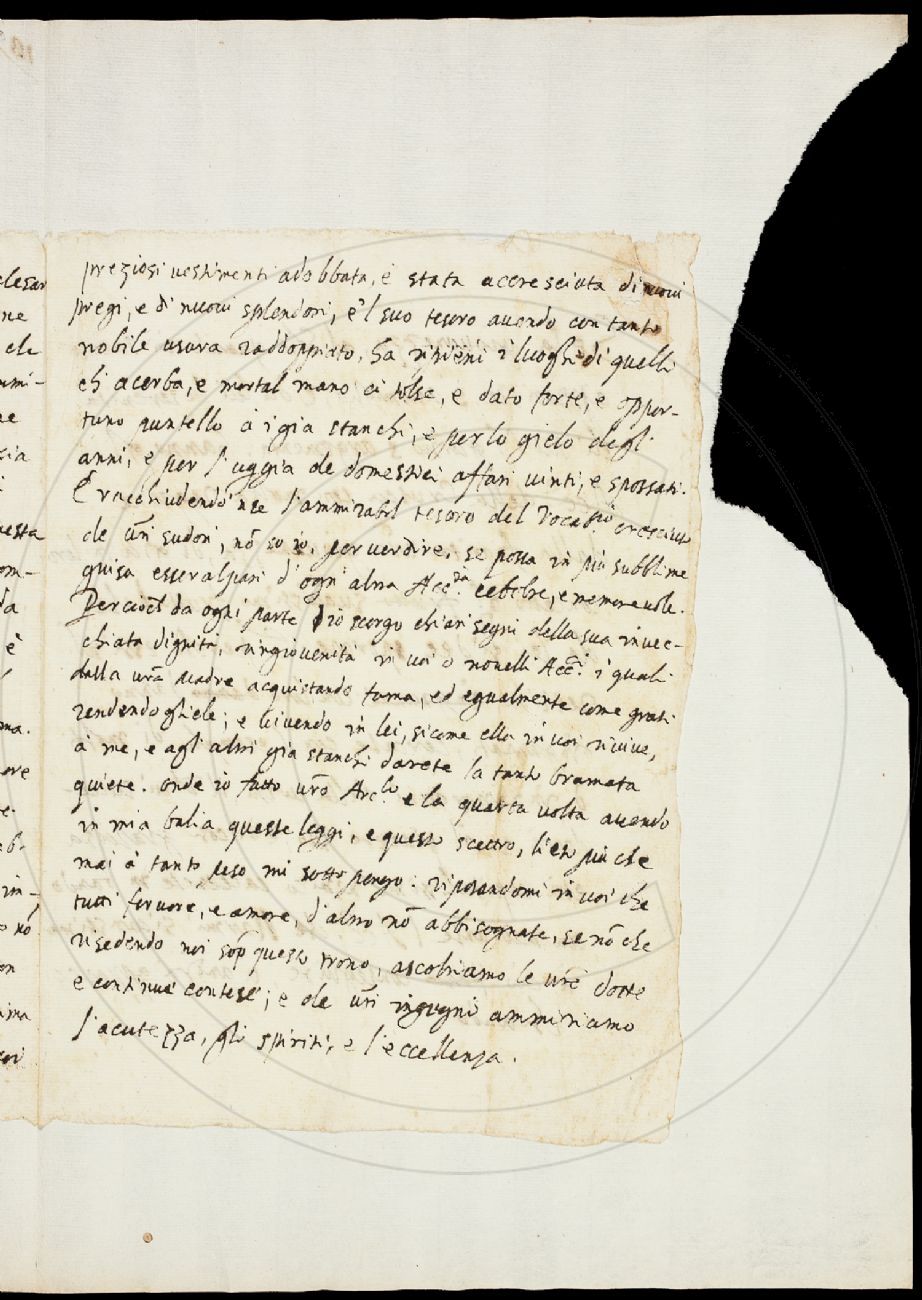 preziosi uestimenti adobbata, è stata accresciuta di nuoui
pregi, e di nuoui splendori, e 'l suo tesoro auendo con tanto
nobile usura raddoppiato, ha i luoghi di quelli
ch' acerba, e mortal mano ci tolse, e dato forte, e oppor-
tuno puntello à i gia stanchi, e per lo gielo degli
anni, e per l'uggia de domestici affari uinti, e spossati.
E racchiudendo'nse l'ammirabil tesoro del Vocab.rio cresciuto
de ūri sudori, nō so io, per uer dire, se possa in più subblime
guisa esser al pari d'ogni altra Acc.a celebre, e memoreuole.
Percioc̄h da ogni parte io scorgo chiari segni della sua inuec-
chiata dignità, ringiouenita in uoi o nouelli Acc.i i quali
dalla ūra Madre acquistando fama, ed egualmente come grati
rendendogliele; e uiuendo in lei, si come ella in uoi riuiue,
à me, e agli altri gia stanchi darete la tanto bramata
quiete. Onde io fatto ūro Arc.lo e la quarta uolta auendo
in mia balia queste leggi, e questo scettro, lieto più che
mai à tanto peso mi sottopongo: riposandomi in uoi che
tutti feruore, e amore, d'altro nō abbisognate, se nō che
risedendo noi sop̄ questo trono, ascoltiamo le ūre dotte
e continue contese; e de ūri ingegni ammiriamo
l'acutezza, gli spiriti, e l'eccellenza.
clesar
ne
che
mmi-
zia
uesta
om-
da
è
ma.
ore
in-
nō
on
ima